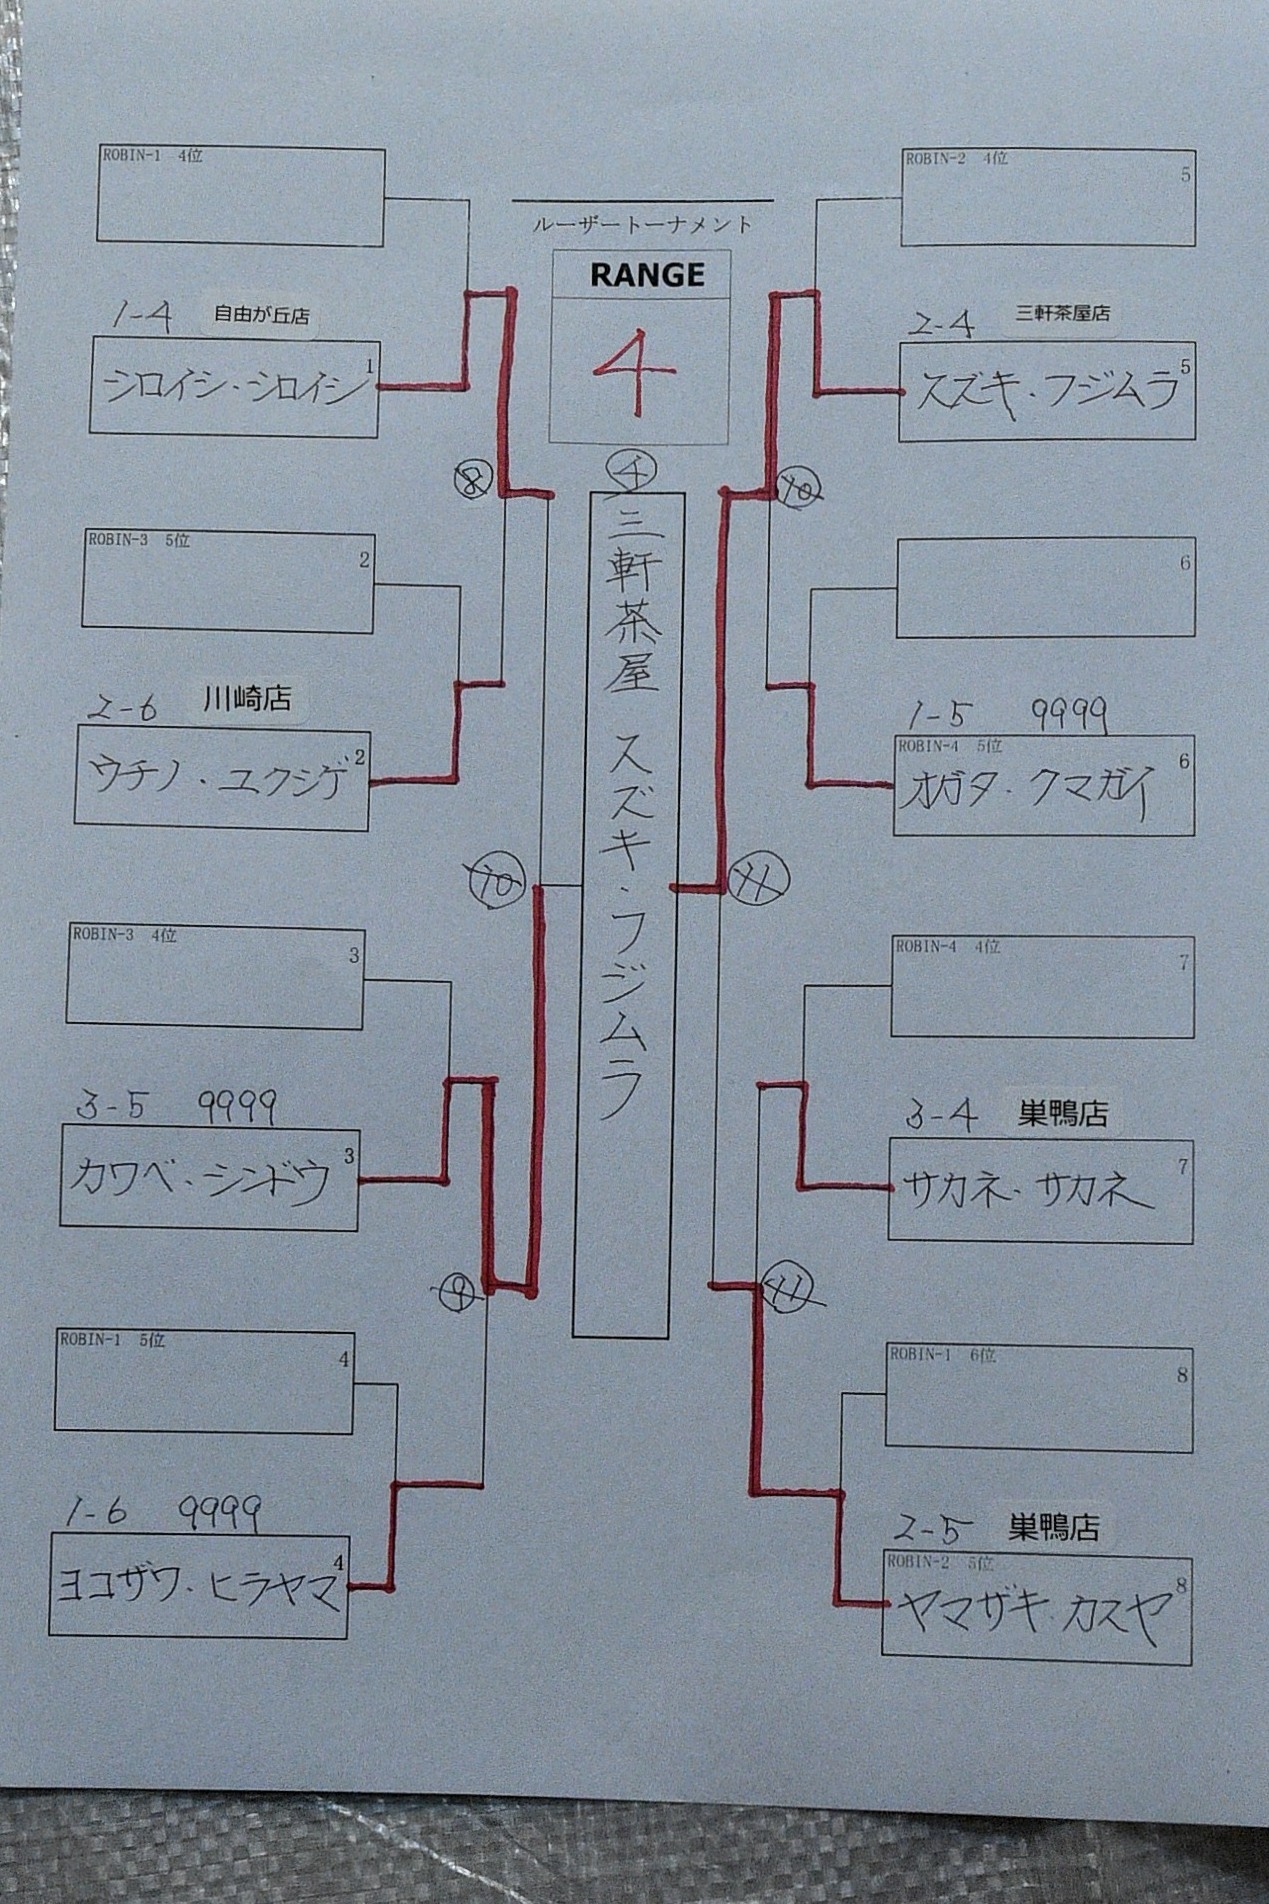 ルーザートーナメント
RANGE
4
4
三軒茶屋 スズキ・フジムラ
ROBIN-1 4位
1-4 自由が丘店
シロイシ・シロイシ 1
8
ROBIN-3 5位 2
2-6 川崎店
ウチノ・ユクシゲ 2
10
ROBIN-3 4位 3
3-5 9999
カワベ・シンドウ 3
9
ROBIN-1 5位 4
1-6 9999
ヨコザワ・ヒラヤマ 4
ROBIN-2 4位 5
2-4 三軒茶屋店
スズキ・フジムラ 5
10
6
1-5 9999
ROBIN-4 5位
オガタ・クマガイ 6
11
ROBIN-4 4位 7
3-4 巣鴨店
サカネ・サカネ 7
11
ROBIN-1 6位 8
2-5 巣鴨店
ROBIN-2 5位
ヤマザキ・カスヤ 8